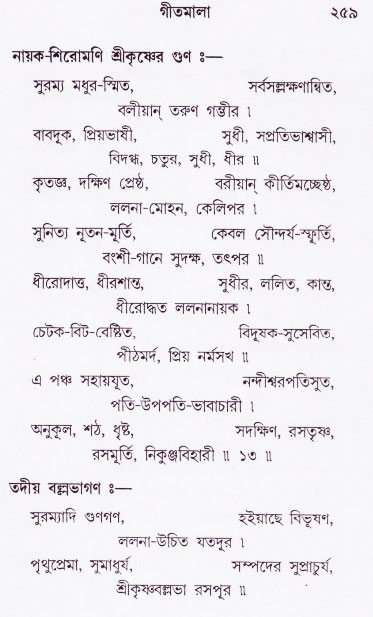 গীতমালা ২৫৯
নায়ক-শিরোমণি শ্রীকৃষ্ণের গুণ ঃ—
সুরম্য মধুর-স্মিত, সর্বসল্লক্ষণান্বিত,
বলীয়ান্ তরুণ গম্ভীর ।
বাবদূক, প্রিয়ভাষী, সুধী, সপ্রতিভাশ্বাসী,
বিদগ্ধ, চতুর, সুধী, ধীর ॥
কৃতজ্ঞ, দক্ষিণ প্রেষ্ঠ, বরীয়ান্ কীর্তিমচ্ছ্রেষ্ঠ,
ললনা-মোহন, কেলিপর ।
সুনিত্য নূতন-মূর্তি, কেবল সৌন্দর্য-স্ফূর্তি,
বংশী-গানে সুদক্ষ, তৎপর ॥
ধীরোদাত্ত, ধীরশান্ত, সুধীর, ললিত, কান্ত,
ধীরোদ্ধত ললনানায়ক ।
চেটক-বিট-বেষ্টিত, বিদূষক-সুসেবিত,
পীঠমর্দ, প্রিয় নর্মসখ ॥
এ পঞ্চ সহায়যূত, নন্দীশ্বরপতিসুত,
পতি-উপপতি-ভাবাচারী ।
অনুকূল, শঠ, ধৃষ্ট, সদক্ষিণ, রসতৃষ্ণ,
রসমূর্তি, নিকুঞ্জবিহারী ॥ ১৩ ॥
তদীয় বল্লভাগণ ঃ—
সুরম্যাদি গুণগণ, হইয়াছে বিভূষণ,
ললনা-উচিত যতদূর ।
পৃথুপ্রেমা, সুমাধুর্য, সম্পদের সুপ্রাচুর্য,
শ্রীকৃষ্ণবল্লভা রসপূর ॥